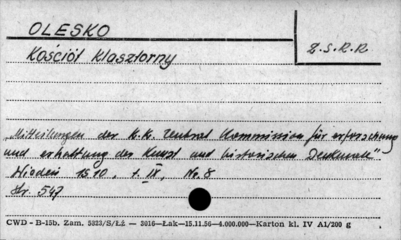 OLESKO
Z.S.R.R.
Kościół klasztorny
"Mitteilungen der K.K. Central Kommission für erforschung
und erhaltung der Kunst und historischen Denkmale"
Wiedeń 1910, t. IX, Nr. 8
Str. 547
CWD - B-15b. Zam. 5323/S/Łż — 2016—Łak—15.11.56—4.000.000—Karton kl. IV A1/200 g